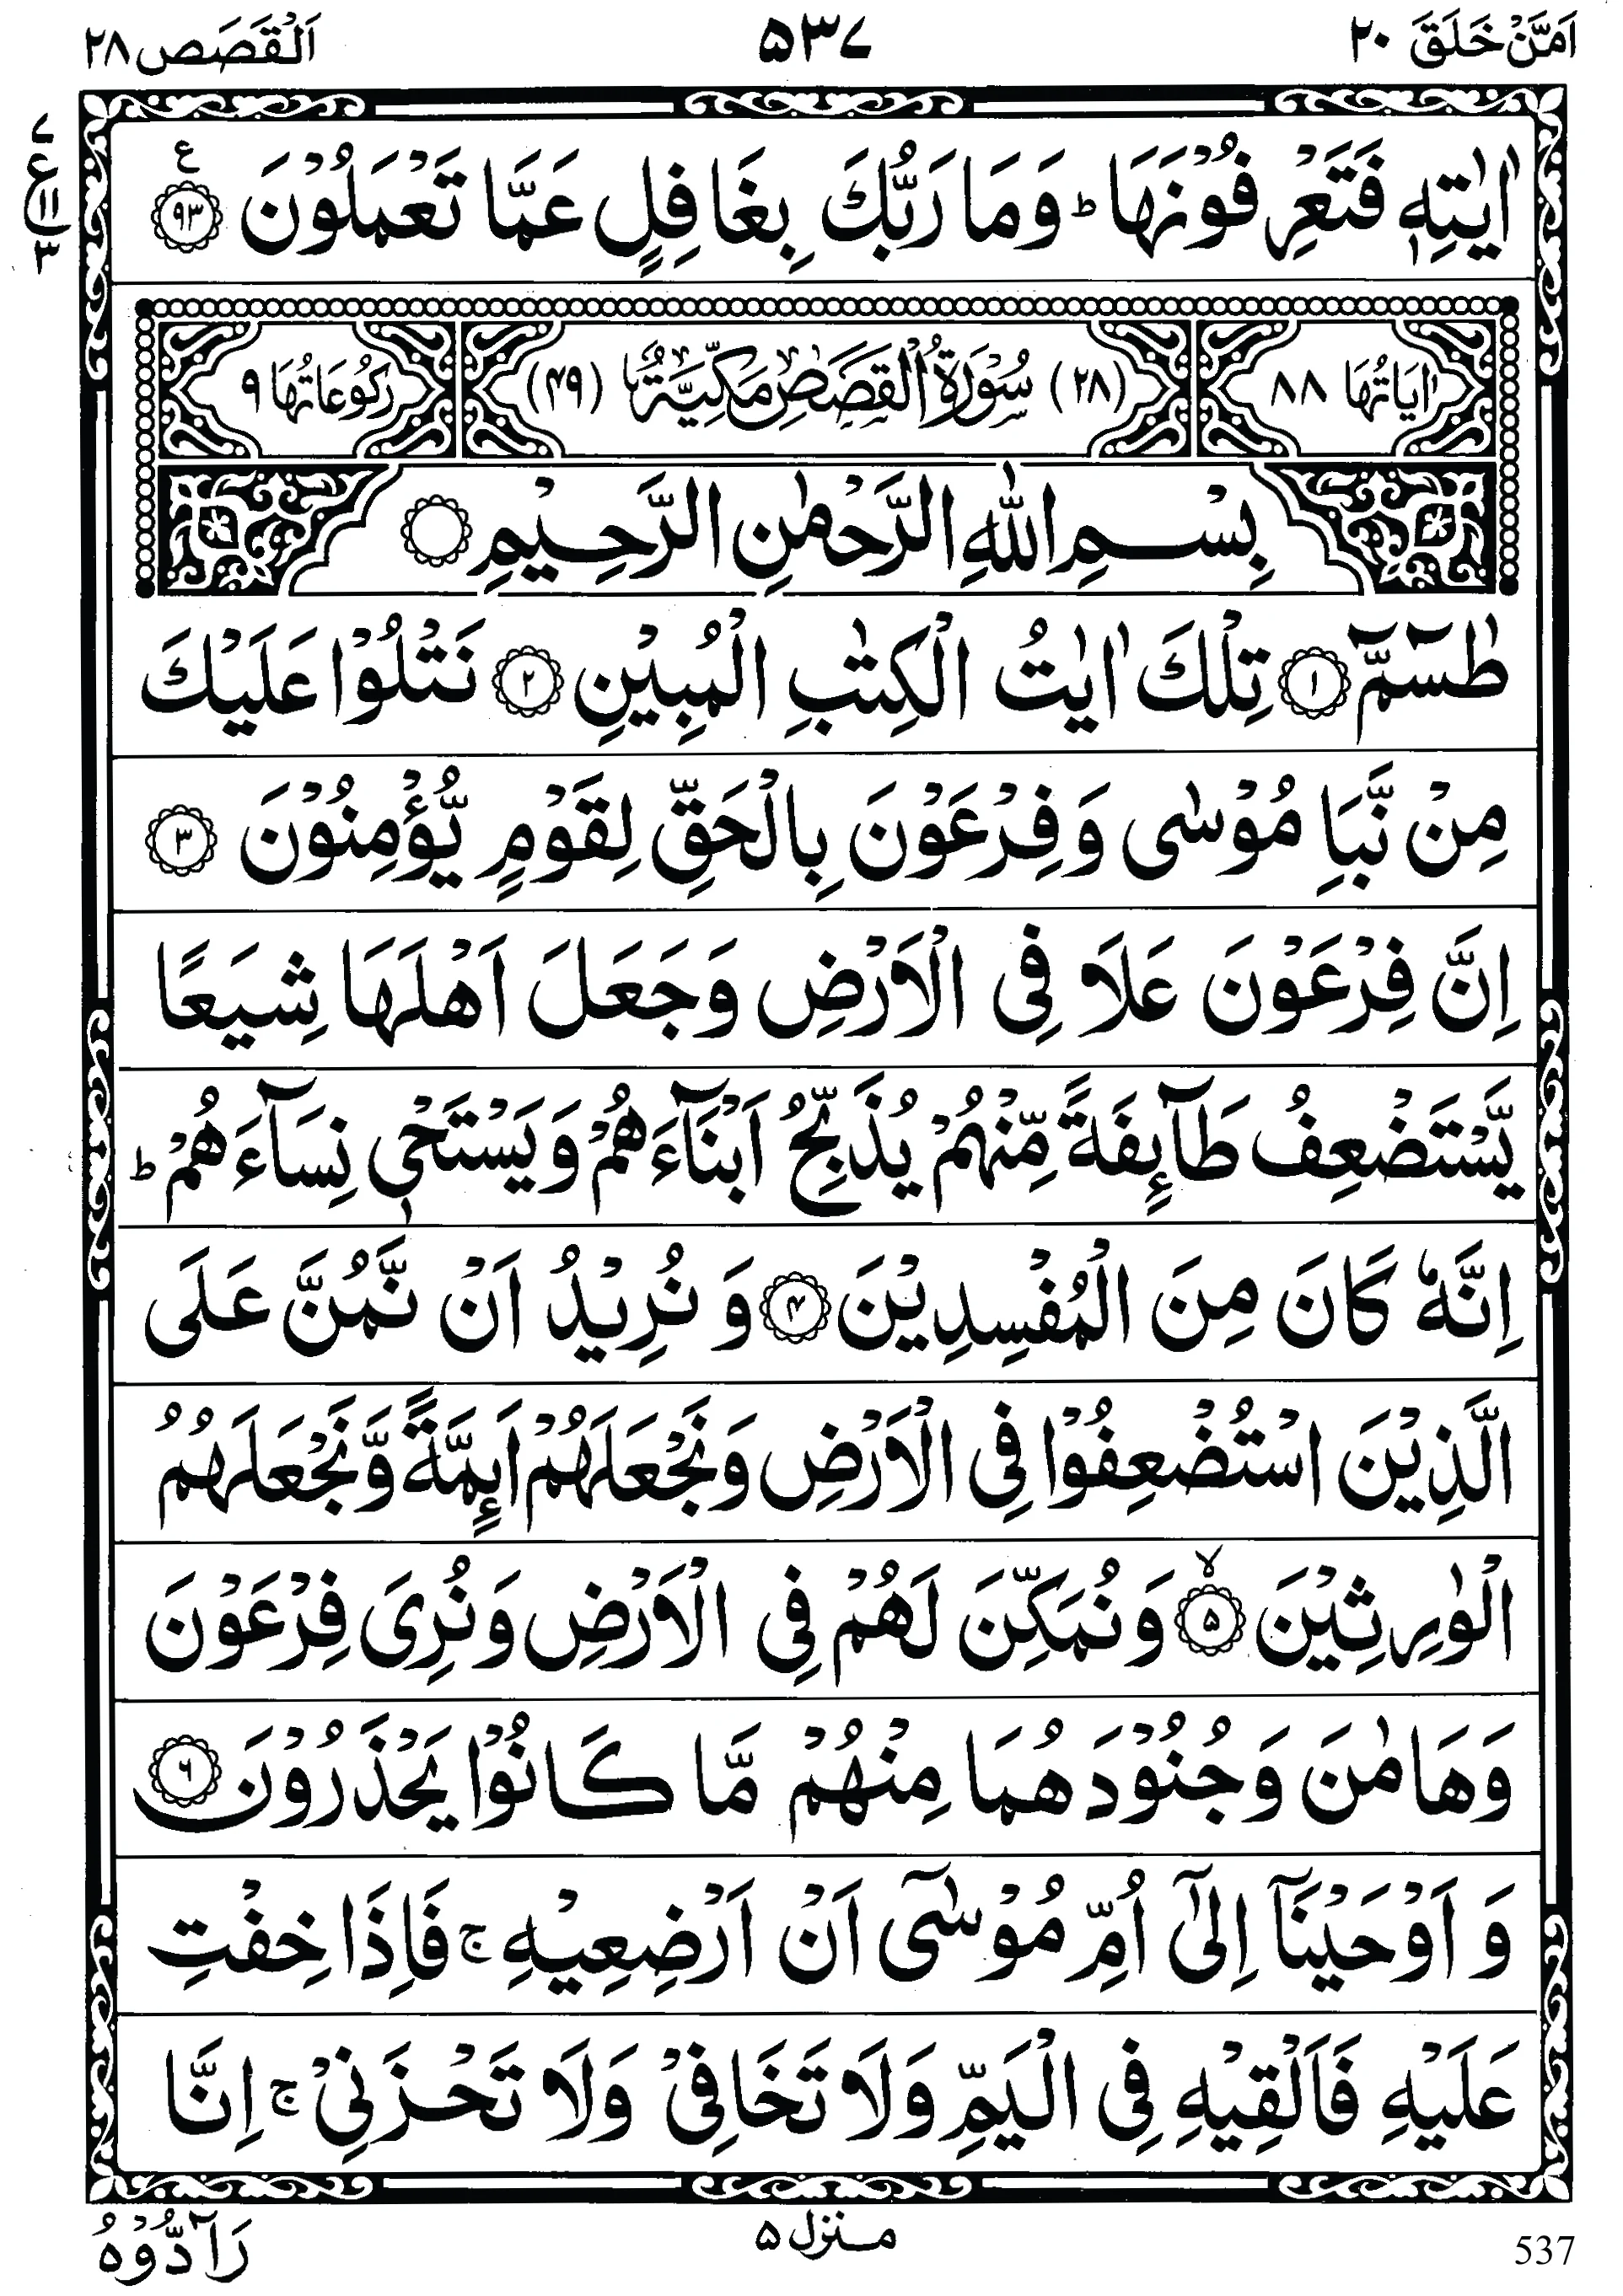 اَمَّنْ خَلَقَ ۲۰
۵۳۷
اَلْقَصَص ۲۸
اٰیٰتِهٖ فَتَعْرِفُوْنَهَا ؕ وَمَا رَبُّكَ بِغَافِلٍ عَمَّا تَعْمَلُوْنَ ۹۳ ع
۷
ع
۱۱
۳
اٰیَاتُهَا ۸۸
(۲۸) سُوْرَةُ الْقَصَصِ مَكِّيَّةٌ (۴۹)
رُكُوْعَاتُهَا ۹
بِسْمِ اللّٰهِ الرَّحْمٰنِ الرَّحِيْمِ
طٰسٓمّٓ ۱ تِلْكَ اٰیٰتُ الْكِتٰبِ الْمُبِيْنِ ۲ نَتْلُوْا عَلَيْكَ
مِنْ نَّبَاِ مُوْسٰى وَفِرْعَوْنَ بِالْحَقِّ لِقَوْمٍ يُّؤْمِنُوْنَ ۳
اِنَّ فِرْعَوْنَ عَلَا فِى الْاَرْضِ وَجَعَلَ اَهْلَهَا شِيَعًا
يَّسْتَضْعِفُ طَآئِفَةً مِّنْهُمْ يُذَبِّحُ اَبْنَآءَهُمْ وَيَسْتَحْىٖ نِسَآءَهُمْ ؕ
اِنَّهٗ كَانَ مِنَ الْمُفْسِدِيْنَ ۴ وَ نُرِيْدُ اَنْ نَّمُنَّ عَلَى
الَّذِيْنَ اسْتُضْعِفُوْا فِى الْاَرْضِ وَنَجْعَلَهُمْ اَئِمَّةً وَّنَجْعَلَهُمُ
الْوٰرِثِيْنَ ۵ۙ وَنُمَكِّنَ لَهُمْ فِى الْاَرْضِ وَنُرِىَ فِرْعَوْنَ
وَهَامٰنَ وَجُنُوْدَهُمَا مِنْهُمْ مَّا كَانُوْا يَحْذَرُوْنَ ۶
وَ اَوْحَيْنَآ اِلٰٓى اُمِّ مُوْسٰٓى اَنْ اَرْضِعِيْهِ ۚ فَاِذَا خِفْتِ
عَلَيْهِ فَاَلْقِيْهِ فِى الْيَمِّ وَلَا تَخَافِىْ وَلَا تَحْزَنِىْ ۚ اِنَّا
رَآدُّوْهُ
منزل ۵
537